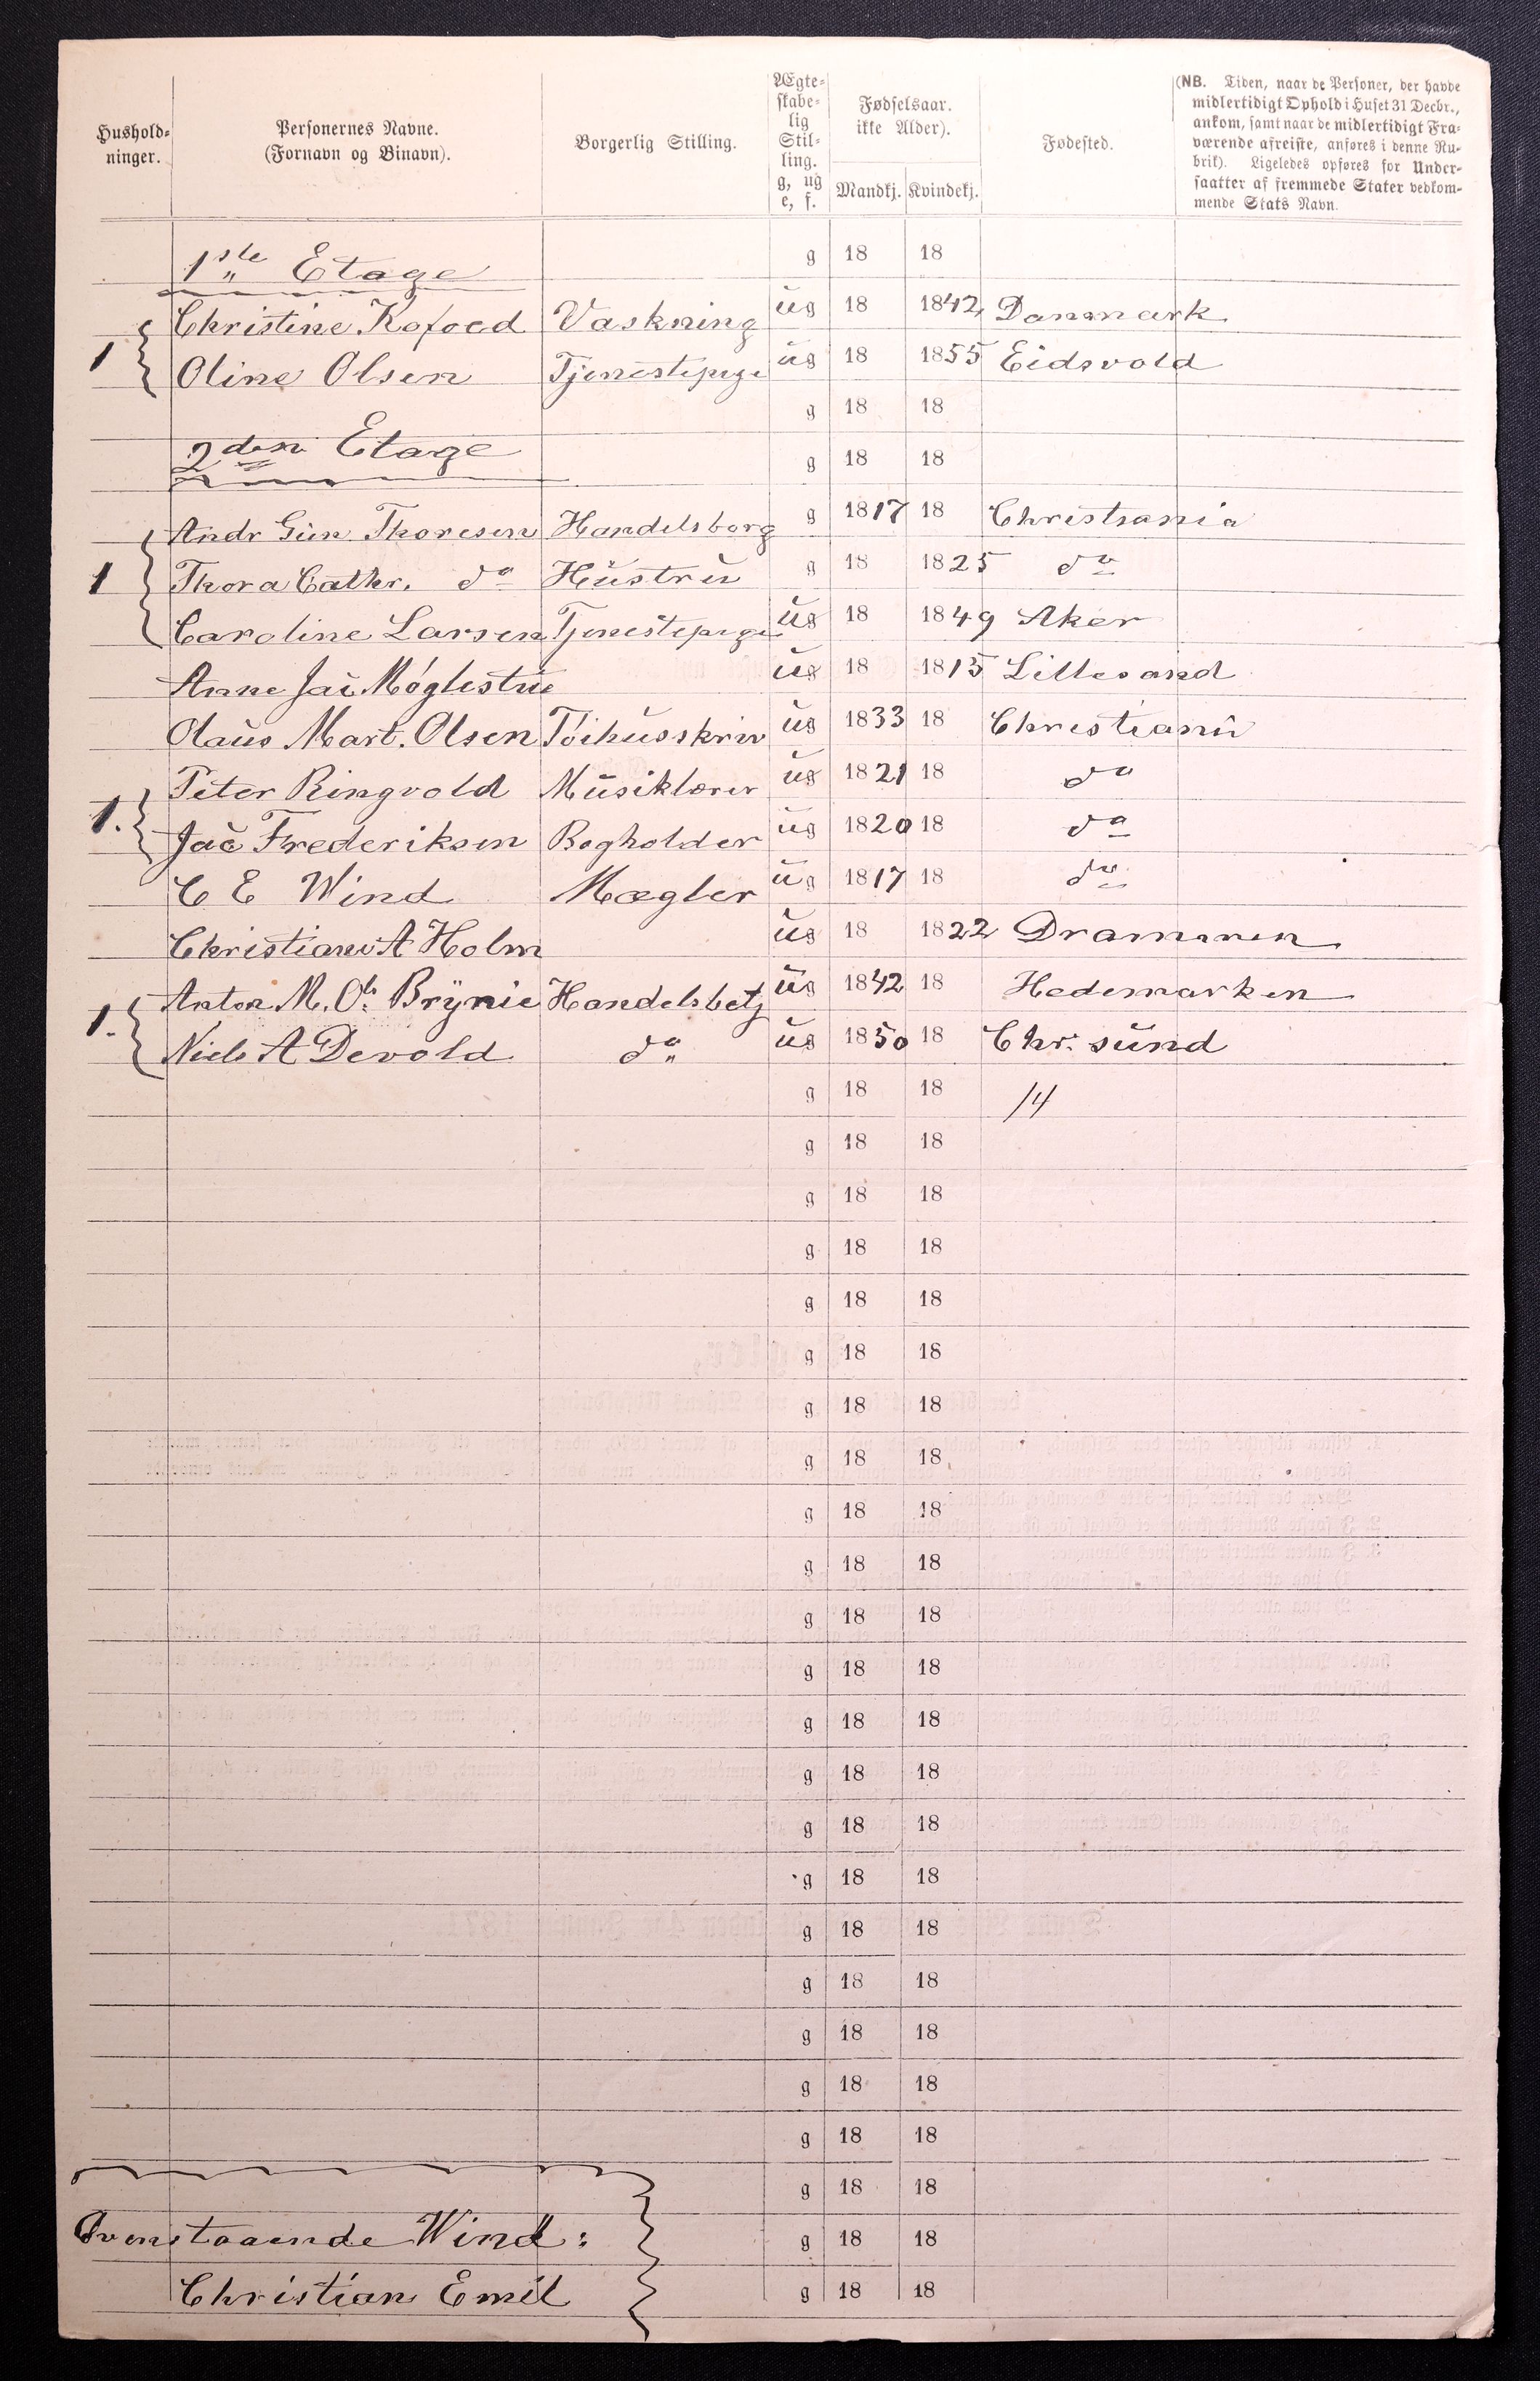 Hushold-
ninger.
Personernes Navne.
(Fornavn og Binavn).
Borgerlig Stilling.
Ægte-
skabe-
lig
Stil-
ling.
g, ug
e, f.
Fødselsaar.
ikke Alder).
Mandkj. Kvindekj.
Fødested.
(NB. Tiden, naar de Personer, der havde
midlertidigt Ophold i Huset 31 Decbr.,
ankom, samt naar de midlertidigt Fra-
værende afreiste, anføres i denne Ru-
brik). Ligeledes opføres for Under-
saatter af fremmede Stater vedkom-
mende Stats Navn.
1ste Etage g 18 18
Christine Kofoed Vaskning ug 18 1842 Danmark
1 Oline Olsen Tjenestepige ug 18 1855 Eidsvold
g 18 18
2den Etage g 18 18
Andr Gun Thoresen Handelsborg g 1817 18 Christiania
1 Thora Cathr. do Hustru g 18 1825 do
Caroline Larsen Tjenestepige ug 18 1849 Aker
Anne Jac Møglestue ug 18 1815 Lillesand
Olaus Mart. Olsen Tøihusskriv ug 1833 18 Christiania
Peter Ringvold Musiklærer ug 1821 18 do
1. Jac Frederiksen Bogholder ug 1820 18 do
C E Wind Mægler ug 1817 18 do
Christiane A Holm ug 18 1822 Drammen
Anton M. Brynie Handelsbetj ug 1842 18 Hedemarken
1. Niels A Devold do ug 1850 18 Chr. sund
g 18 18 14
g 18 18
g 18 18
g 18 18
g 18 18
g 18 18
g 18 18
g 18 18
g 18 18
g 18 18
g 18 18
g 18 18
g 18 18
g 18 18
g 18 18
g 18 18
g 18 18
g 18 18
g 18 18
g 18 18
g 18 18
g 18 18
Ovenstaaende Wind: g 18 18
Christian Emil g 18 18